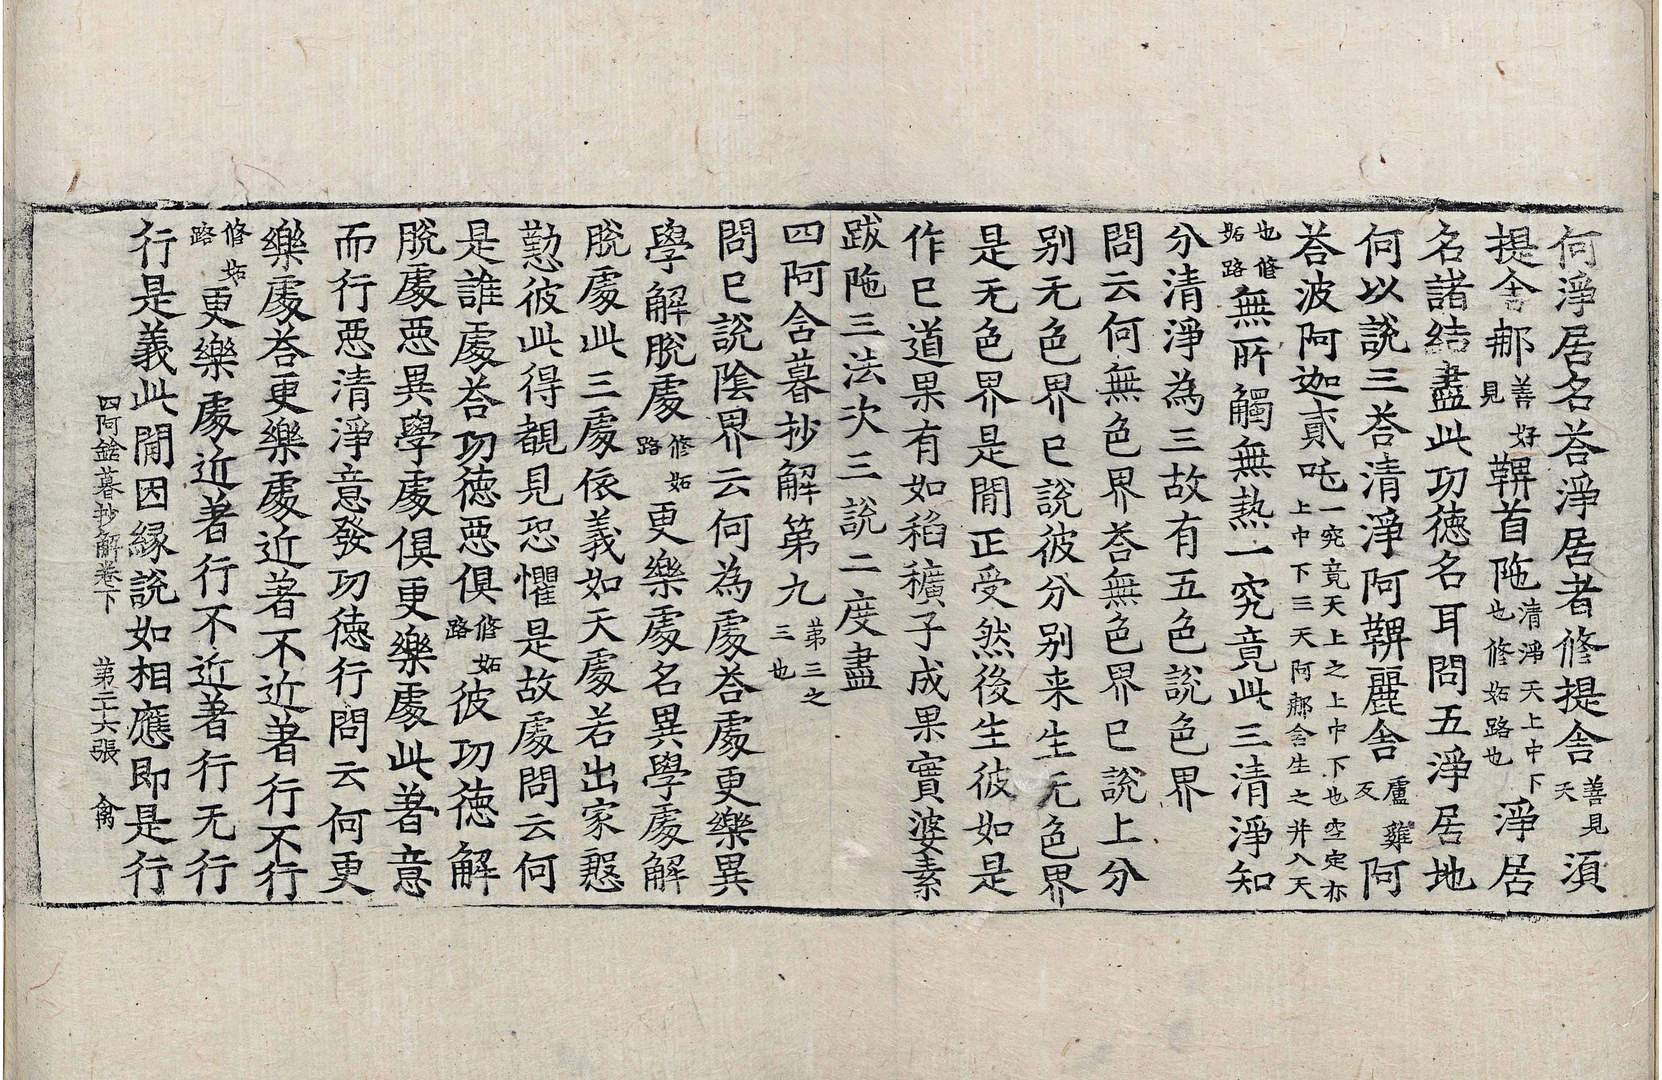 何淨居名荅淨居者修提舎善見天須
提舍𨙻善見好鞞首陁清淨天上中下也修妬路也淨居
名諸結盡此功徳名耳問五淨居地
何以說三荅清淨阿鞞麗舎盧雞反阿
荅波阿迦貳吒一究竟天上之上中下也空定亦上中下三天阿𨙻含生之并入天
也修妬路無所觸無熱一究竟此三清淨知
分清淨為三故有五色說色界
問云何無色界荅無色界已說上分
别无色界已說彼分别来生无色界
是无色界是閒正受然後生彼如是
作已道果有如稻穬子成果實婆素
跋陁三法次三說二度盡
四阿含暮抄解第九第三之三也
問已說陰界云何為處荅處更樂異
學解脫處修妬路更樂處名異學處解
脫處此三處依義如天處若出家慇
懃彼此得覩見恐懼是故處問云何
是誰處荅功徳惡俱修妬路彼功徳解
脫處惡異學處俱更樂處此著意
而行惡清淨意發功徳行問云何更
樂處荅更樂處近著不近著行不行
修妬路更樂處近著行不近著行无行
行是義此閒因縁說如相應即是行
四阿鋡暮抄解卷下 第二十六張 禽